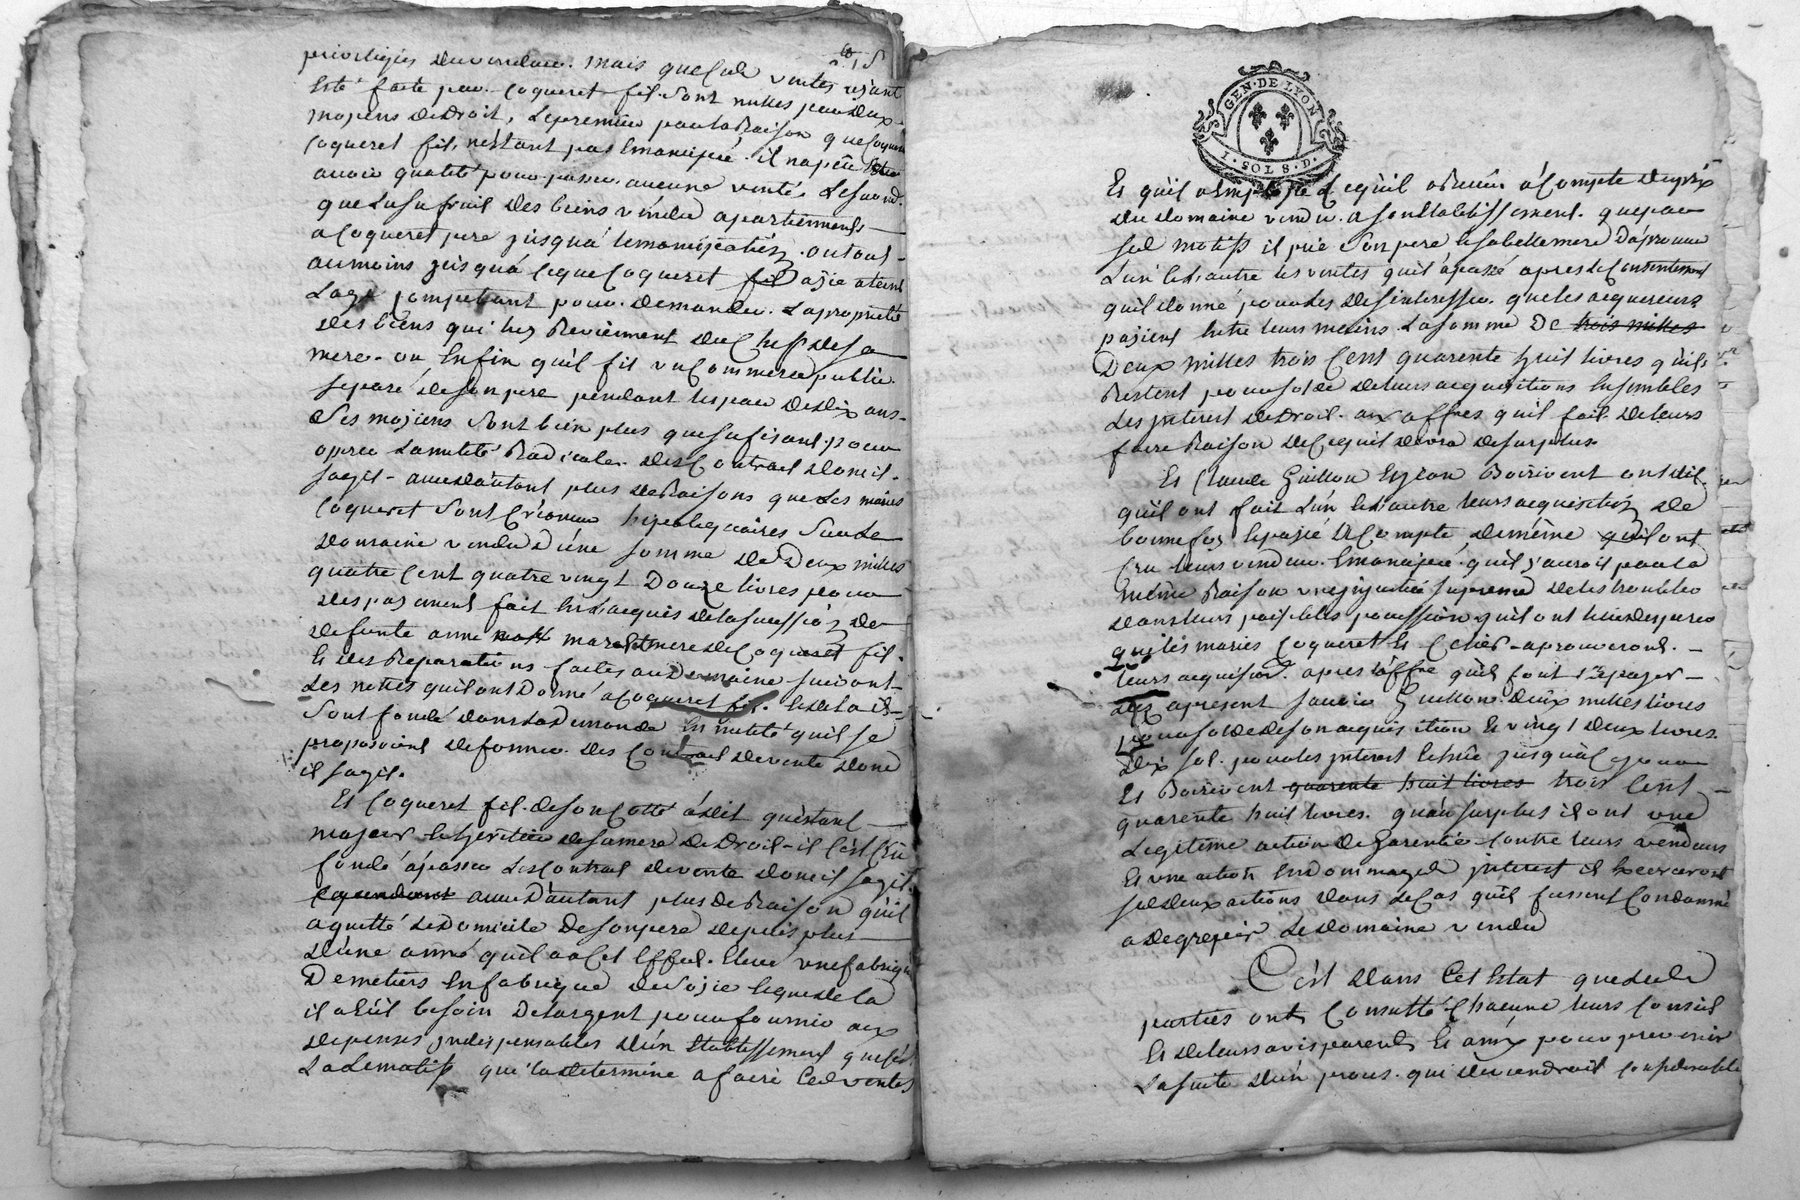 privilégiés du vendeur. mais que led ventes n'ayant
Esté faite par Coqueret fil. sont nulles par deux
moyens de Droit, Le premier par la Raison que
Coqueret fil, n'estant pas Emancipé. il napeu
avoir qualité pour passer aucune vente. Le second.
que Lusufruit des biens vendu apartienent
a Coqueret pere jusqua lemancipation, ou tout
aumoins jusqua ceque Coqueret fil aije ateint
Lage competant pour demander. La proprieté
des biens qui luy Reviennent du Chef de sa
mere. ou Enfin qu'il fit un Commerce public
separé de son pere pendant lespace de dix ans
Ses moyiens sont bien plus que sufisant pour
operer La nulité Radicale des Contract dont il
sagit. avec d'autant plus de Raisons que Les mariés
Coqueret sont Créancier hipotequaires sur Le
domaine vendu d'une somme de Deux milles
quatre Cent quatre vingt Douze livres pour
des payement fait En l'acquis de la succession de
defunte anne maret mere de Coqueret fil.
Et des Reparations faites au Domaine suivant
Les nottes quil ont Donné a Coqueret fil. Et de la il
sont fondé dans La Demande En nulité qu'il se
proposoient de former des Contract de vente dont
il sagit.
Et Coqueret fil. de son Cotté a dit qu'estant
majeur Et heritier de sa mere de Droit. il c'est Cru
fondé a passer Les Contract de vente dont il sagit.
Cependant avec D'autant plus de Raison qu'il
a quitté Le Domicile de son pere depuis plus
d'une anné qu'il a a Cet Effet. Elevé une fabrique
De metiers En fabrique de soye Et que de la
il a Eu besoin De largent pour fournir aux
depenses indispensables d'un Etablissement que c'est
La Le motif qui la determiné a faire Led ventes
GEN. DE LYON
I. SOL 8. D.
Et qu'il a Employé Ce qu'il a Reçu a Compte du prix
du domaine vendu. a son Etablissement. que par
sel motifs il prie son pere Et sa bellemere D'aprouver
L'un Et L'autre les ventes qu'il a passé apres Le Consentement
qu'il donne pour Les desinteresser. que les acquereurs
payient Entre leurs mains La somme De trois milles
Deux milles trois Cent quarente huit livres qu'il
Restent pour solde de leurs acquisitions Ensembles
Les interest de Droit. aux offres qu'il fait de leurs
faire Raison de Ce qui devra de surplus
Et Claude Guillon Et Jean Boirivent ont dit
qu'il ont fait L'un Et L'autre leurs acquisition de
bonnefoy Et payé a Compte de meme qu'il ont
Cru leurs vendeur. Emancipé. qu'il y auroit par la
meme Raison une injustice supreme de les troubler
dans leurs paisibles possession qu'il ont lieu desperer
que les mariés Coqueret Et Celier aprouveront.
leurs acquisition apres L'offre qu'il font de payer
des apresent savoir Guillon deux milles livres
pour solde de son acquisition Et vingt deux livres
dix sol. pour Les interest Echu jusqua Ce jour
Et Boirivent quarente huit livres trois Cent
quarente huit livres. qu'au surplus il ont une
Legitime action de Garentie Contre leurs vendeurs
Et une action En dommages interest il Exerceront
sel deux actions dans Le Cas qu'il fussent Condamné
a deguerpir Le domaine vendu
C'est dans Cet Estat que Led
parties ont Consulté Chacune leurs Conseil
Et de leurs avis parents Et amis pour prevenir
La suite d'un proces. qui deviendroit Considerable